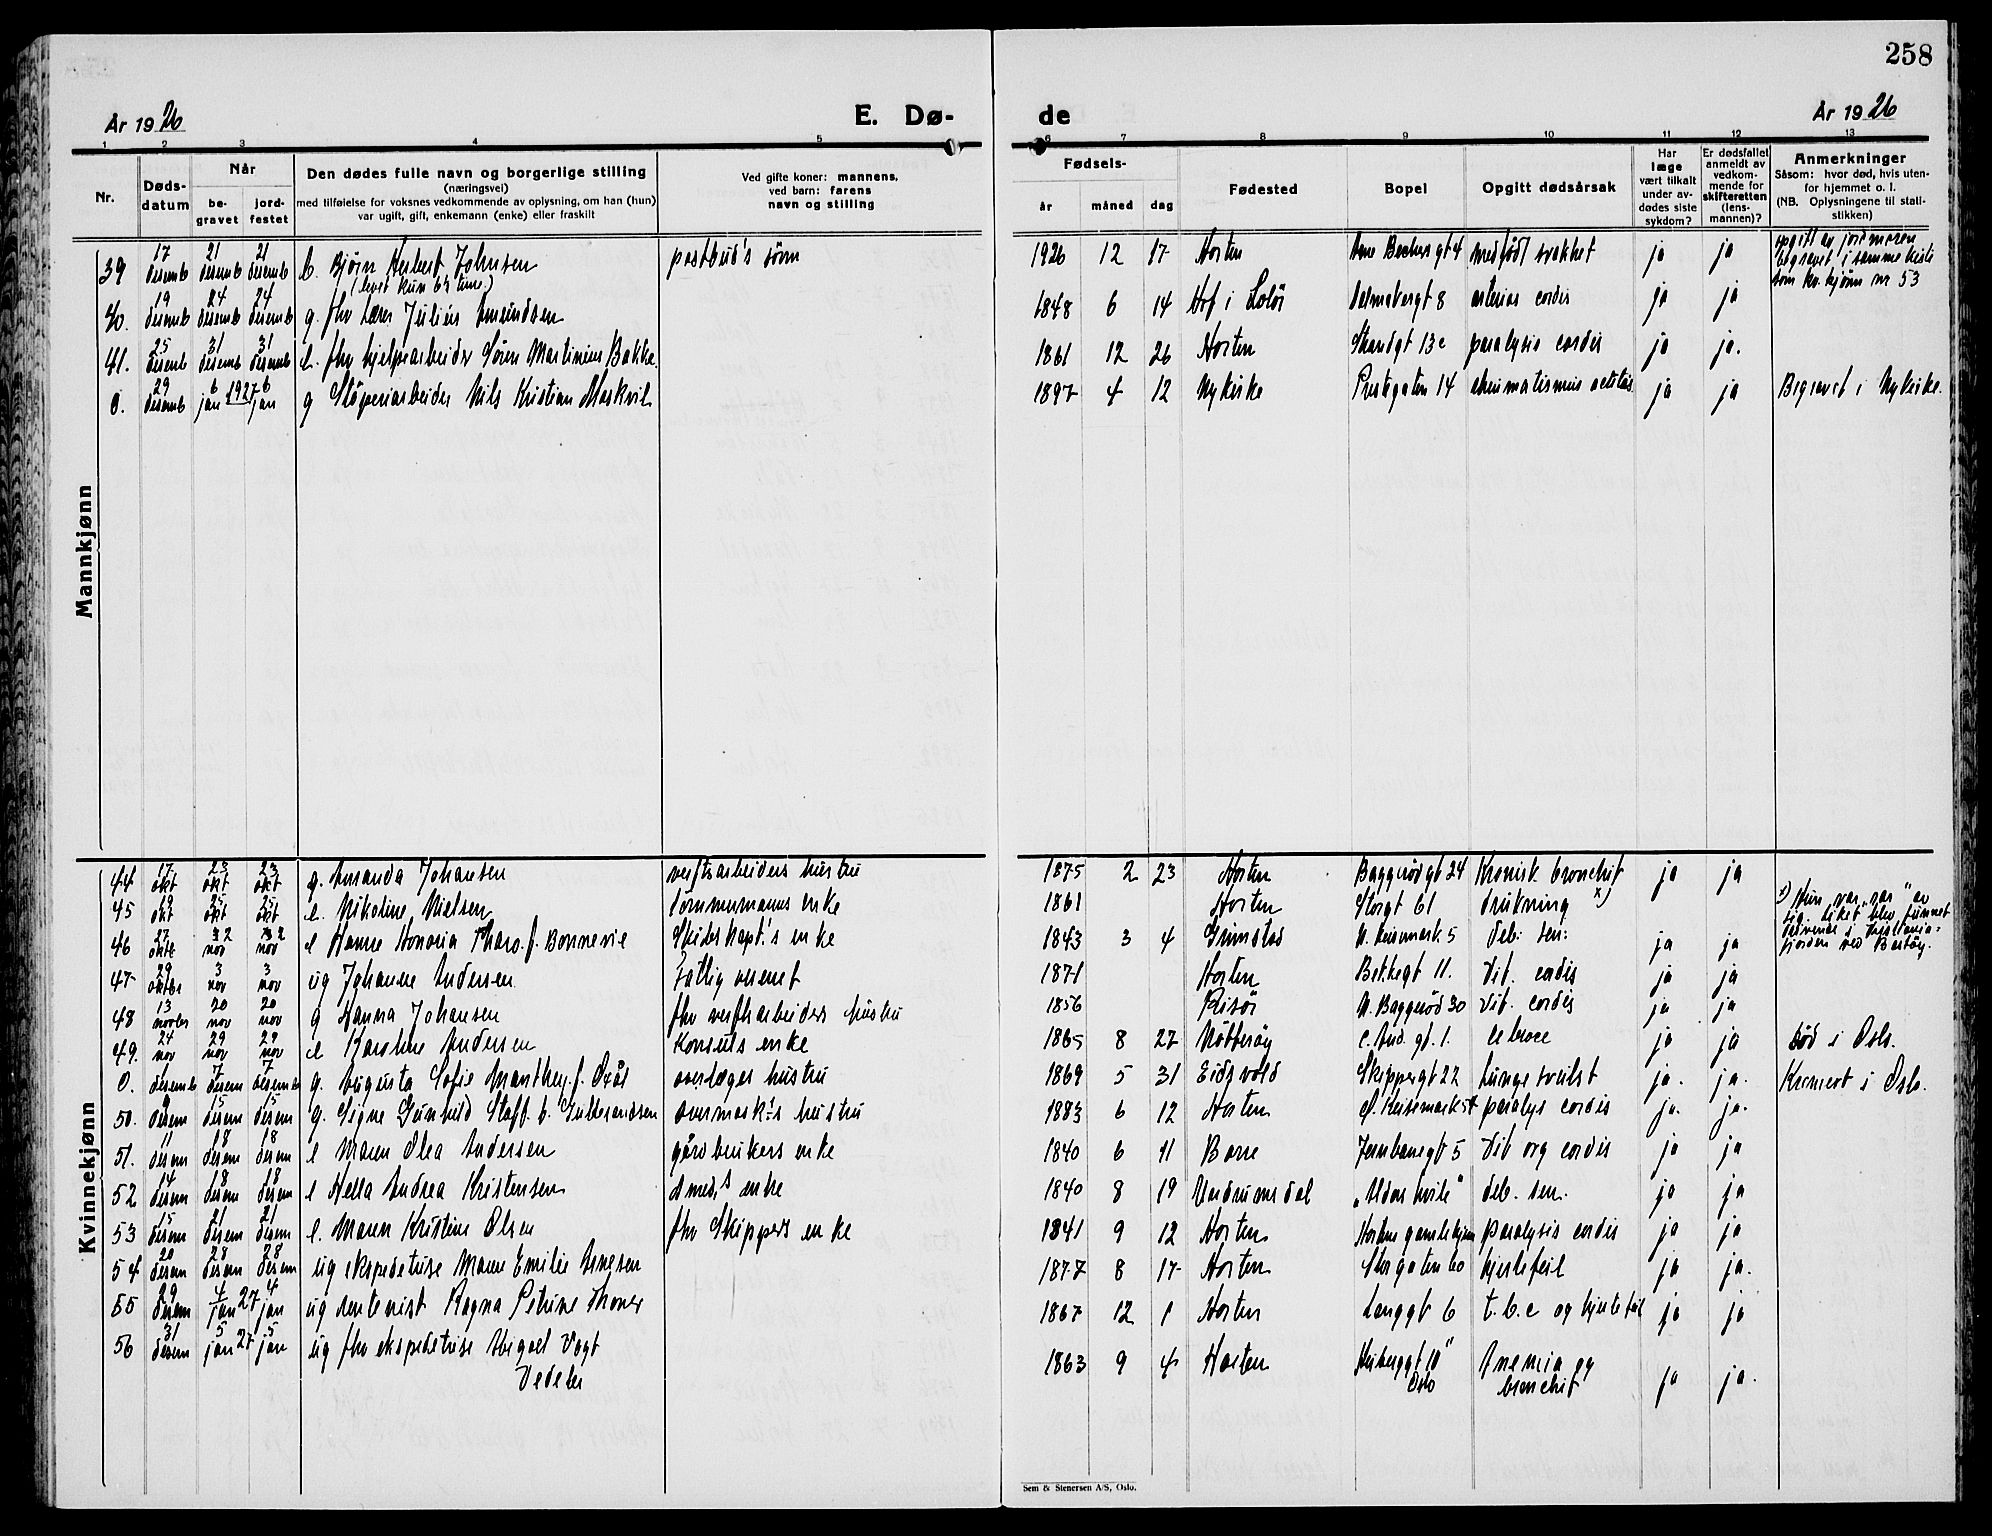 258
År 1926
E. Dø-
de
År 1926
1 2 3 4 5 6 7 8 9 10 11 12 13
Nr.
Døds-
datum
Når
be-
gravet
jord-
festet
Den dødes fulle navn og borgerlige stilling
(næringsvei)
med tilføielse for voksnes vedkommende av oplysning, om han (hun)
var ugift, gift, enkemann (enke) eller fraskilt
Ved gifte koner: mannens,
ved barn: farens
navn og stilling
Fødsels-
år
måned
dag
Fødested
Bopel
Opgitt dødsårsak
Har
læge
vært tilkalt
under av-
dødes siste
sykdom?
Er dødsfallet
anmeldt av
vedkom-
mende for
skifteretten
(lens-
mannen)?
Anmerkninger
Såsom: hvor død, hvis uten-
for hjemmet o. l.
(NB. Oplysningene til stati-
stikken)
Mannkjønn
39 17 desemb 21 desemb 21 desemb b. Bjørn Herbert Johnsen postbud's sønn 1926 12 17 Horten medfødt svakhet ja ja opgitt av jordmoren
(levet kun 6½ time.) begravet i samme kiste
som kv. kjønn nr 53
40. 19 desemb 24 desemb 24 desemb g. fhv Lærer Julius Amundsen 1848 6 14 Hof i Solør 8 cordis ja ja
41. 25 desemb 31 desemb 31 desemb e. fhv hjelpearbeider Søren Martinius Bakke. 1861 12 26 Horten Strandgt 13c paralysis cordis ja ja.
0. 29 desemb 6 jan 1927 6 jan g Støperiarbeider Nils Kristian Moskvil 1897 4 12 Nykirke Prestegaten 14 ja ja Begravet i Nykirke.
Kvinnekjønn
44 17 okt 23 okt 23 okt g. Amanda Johansen verftsarbeiders hustru 1875 2 23 Horten Baggerødgt 24 Kronisk bronchit ja ja
45 19 okt 25 okt 25 okt e. Nikoline Nielsen tømmermanns enke 1861 Horten Storgt 61 drukning x) x) Hun var "rar" av
sig. Liket blev funnet
drivende i Kristiania-
fjorden ved Bastøy.
46 27 okt 2 nov 2 nov e Hanne Honoria f. Bonnevie Skibskapt.'s enke 1843 3 4 Grimstad 5 deb: sen: ja ja
47 29 oktbr 3 nov 3 nov ug Johanne Andersen Fattig 1871 Horten Bekkegt 11. Vit. cordis ja ja
48 13 novbr 20 nov 20 nov g Hanna Johansen fhv verftsarbeiders hustru 1856 Risør N. Baggerød 30 Vit. cordis ja ja
49. 24 nov 29 nov 29 nov e Karoline Andersen Konsuls enke 1865 8 27 Nøtterøy c. And. gt. 1. ja ja død i Oslo.
0. desemb 7 desem 7 desemb g. Augusta Sofie Manthey f. overlæges hustru 1869 5 31 Eidsvold Skippergt 22 Lungesvulst ja. ja. Kremert i Oslo.
50. 9 desem 15 desem 15 desem g. Signe Gunhild Staff f. Gulbrandsen overmask.'s hustru 1883 6 12 Horten paralys cordis ja. ja.
51. 11 desem 18 desem 18 desem e Maren Olea Andersen gårdbrukers enke 1840 6 11 Borre Jernbanegt 5 Vit org cordis ja ja
52 14 desem 18 desem 18 desem e Hella Andrea Kristensen smed's enke 1840 8 19 Undrumsdal "Aldershvile" deb. sen. ja ja
53 15 desem 21 desem 21 desem e. Maren Kristine Olsen fhv Skippers enke 1841 9 12 Horten Hortens gamlehjem paralysis cordis ja ja
54 20 desem 28 desem 28 desem ug ekspeditrise Maren Emilie Arnesen 1877 8 17 Horten Storgaten 60 hjertefeil ja ja.
55 29 desem 4 jan 27 4 jan ug dentevist Ragna Petrine Thoner 1867 12 1 Horten Langgt 6 t.b.c og hjertefeil ja ja
56 31 desem 5 jan 27 5 jan ug fhv ekspeditrise Abigael Vogt 1863 9 4 Horten 10" Anemia og ja ja.
Vedeler Oslo bronchit
Sem & Stenersen A/S, Oslo.